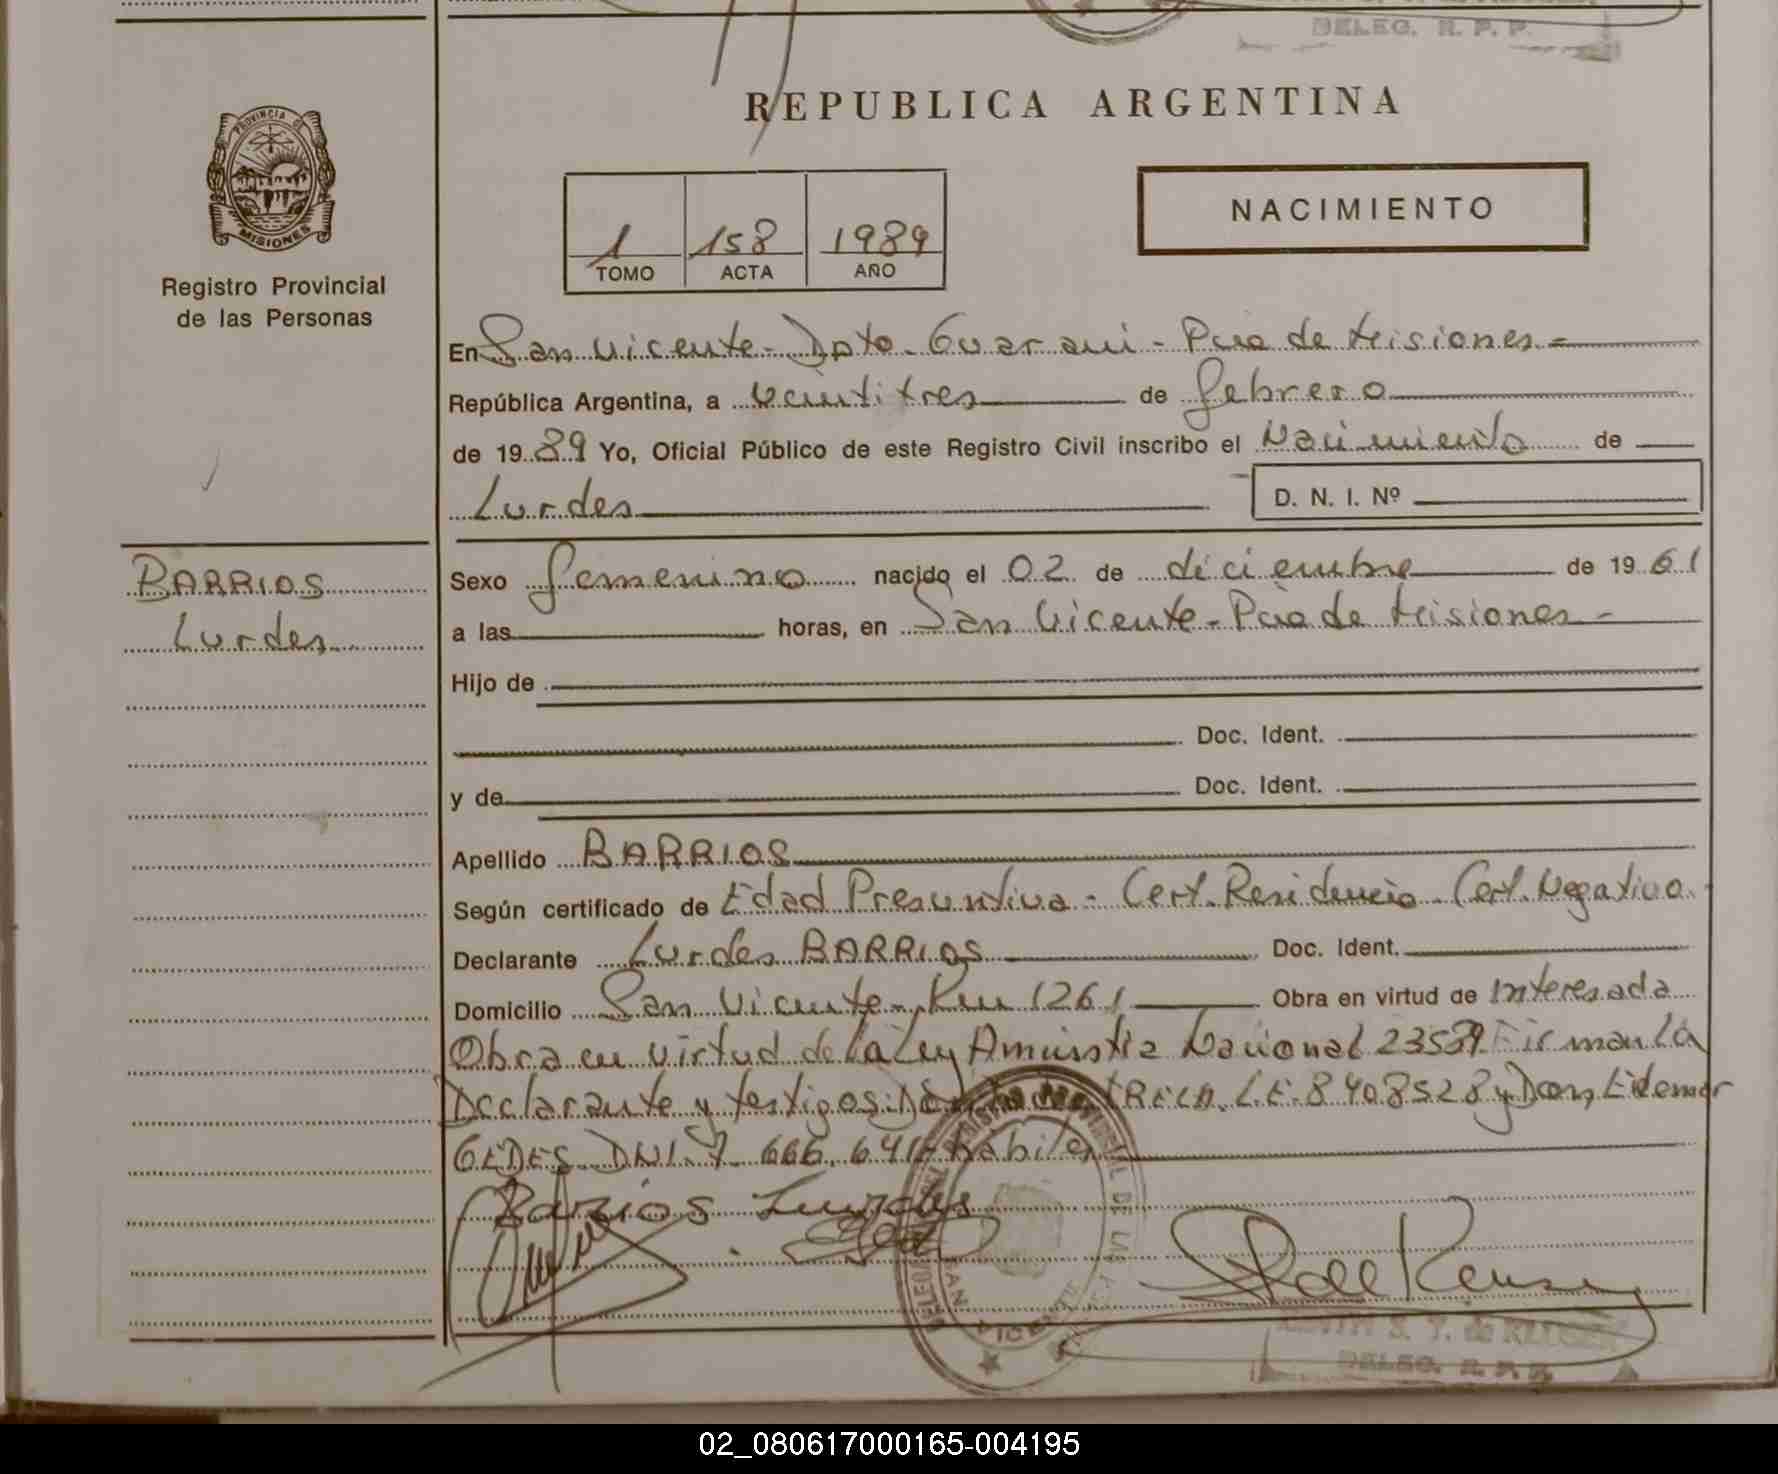 DELEG. R. P. P.
REPUBLICA ARGENTINA
PROVINCIA DE
MISIONES
Registro Provincial
de las Personas
NACIMIENTO
1 158 1989
TOMO ACTA AÑO
En San Vicente - Dpto. Guarani - Pcia de Misiones -
República Argentina, a veintitres de febrero
de 1989 Yo, Oficial Público de este Registro Civil inscribo el Nacimiento de
Lurdes D. N. I. Nº
BARRIOS
Lurdes
Sexo femenino nacido el 02 de diciembre de 1961
a las horas, en San Vicente - Pcia de Misiones -
Hijo de
Doc. Ident.
y de Doc. Ident.
Apellido BARRIOS
Según certificado de Edad Presuntiva - Cert. Residencia - Cert. Negativo.
Declarante Lurdes BARRIOS Doc. Ident.
Domicilio San Vicente - Km 1261 Obra en virtud de Interesada
Obra en virtud de la Ley Amnistia Nacional Firman la
Declarante y testigos: L.E. 8408528 y Don Edemar
GEDES DNI. 7.666.641 - Habiles
Barrios Lurdes
DELEG. R. P. P.
02_080617000165-004195